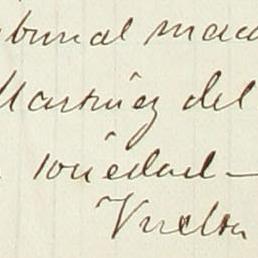 bunal mad
Martinez del
sociedad
Vuelta